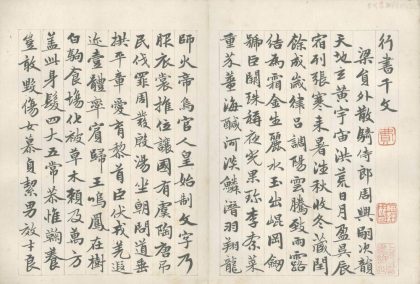 行書千文
梁員外散騎侍郎周興嗣次韻
天地玄黃宇宙洪荒日月盈昃辰
宿列張寒來暑往秋收冬藏閏
餘成歲律呂調陽雲騰致雨露
結為霜金生麗水玉出崐岡劍
號巨闕珠稱夜光果珍李柰菜
重芥薑海鹹河淡鱗潛羽翔龍
師火帝鳥官人皇始制文字乃
服衣裳推位讓國有虞陶唐弔
民伐罪周發殷湯坐朝問道垂
拱平章愛育黎首臣伏戎羌遐
邇壹體率賓歸王鳴鳳在樹
白駒食場化被草木賴及萬方
蓋此身髮四大五常恭惟鞠養
豈敢毀傷女慕貞絜男效才良